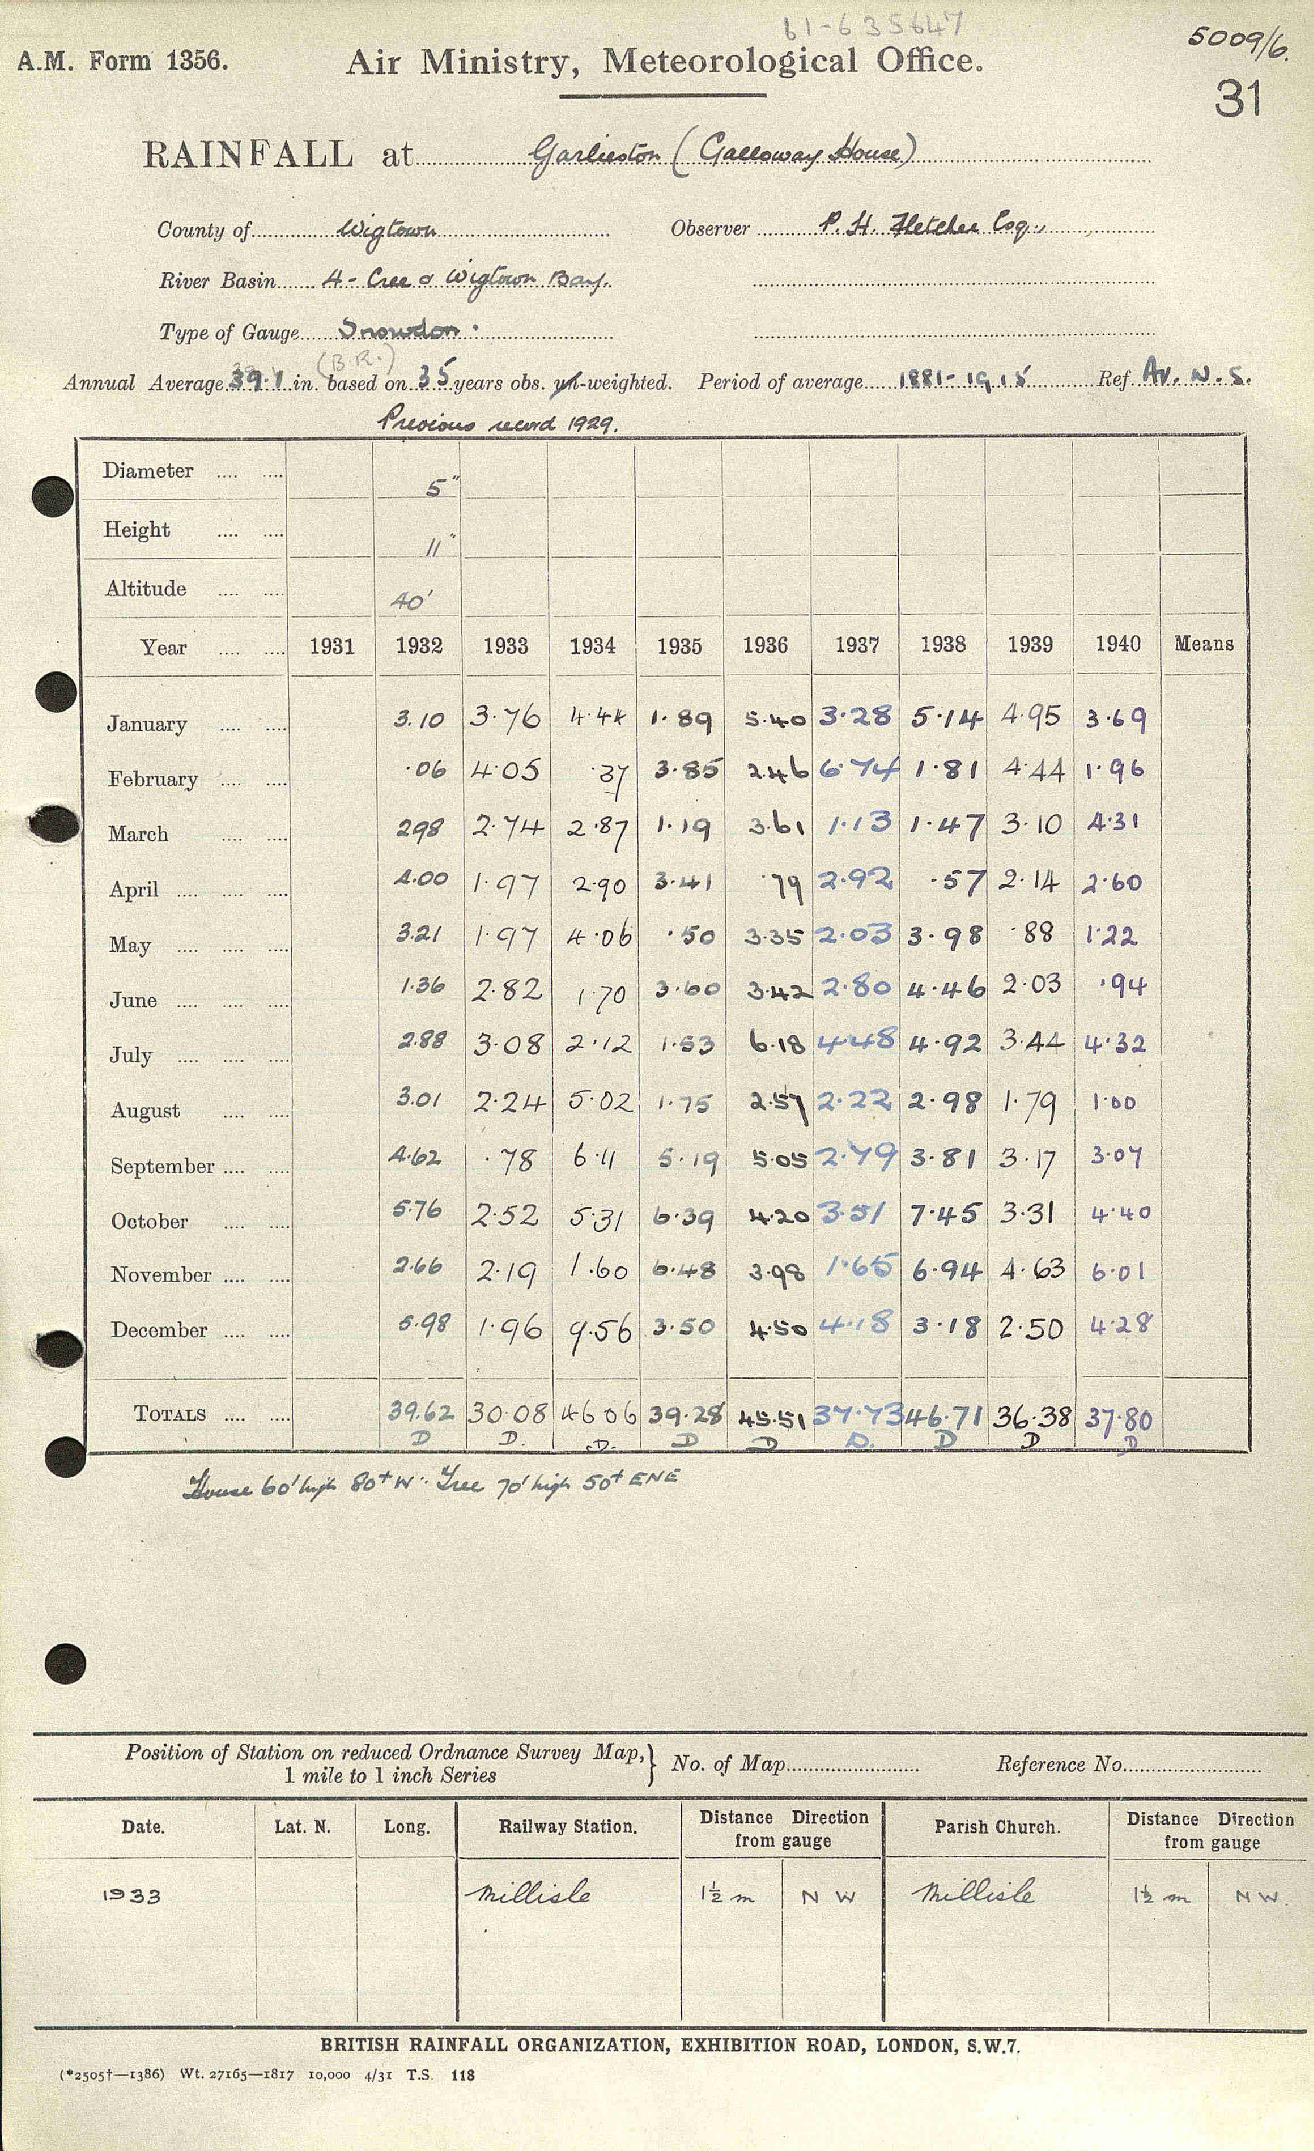 61-635647
5009/6.
A.M. Form 1356. Air Ministry, Meteorological Office.
31
RAINFALL at Garlieston (Galloway House)
County of Wigtown Observer P. H. Fletcher Esq.,
River Basin 4- Cree & Wigtown Bay.
Type of Gauge Snowdon.
(B.R.)
Annual Average 39.1 in. based on 35 years obs. un-weighted. Period of average 1881-1915 Ref Av. N. S.
Previous record 1929.
Diameter .... .... 5"
Height .... .... 11"
Altitude .... .... 40'
Year .... .... 1931 1932 1933 1934 1935 1936 1937 1938 1939 1940 Means
January .... .... 3.10 3.76 4.44 1.89 5.40 3.28 5.14 4.95 3.69
February .... .... .06 4.05 .37 3.85 2.46 6.74 1.81 4.44 1.96
March .... .... 2.98 2.74 2.87 1.19 3.61 1.13 1.47 3.10 4.31
April .... .... .... 4.00 1.97 2.90 3.41 .79 2.92 .57 2.14 2.60
May .... .... .... 3.21 1.97 4.06 .50 3.35 2.03 3.98 .88 1.22
June .... .... .... 1.36 2.82 1.70 3.60 3.42 2.80 4.46 2.03 .94
July .... .... .... 2.88 3.08 2.12 1.53 6.18 4.48 4.92 3.44 4.32
August .... .... 3.01 2.24 5.02 1.75 2.57 2.22 2.98 1.79 1.00
September .... .... 4.62 .78 6.11 5.19 5.05 2.79 3.81 3.17 3.07
October .... .... 5.76 2.52 5.31 6.39 4.20 3.51 7.45 3.31 4.40
November .... .... 2.66 2.19 1.60 6.48 3.98 1.65 6.94 4.63 6.01
December .... .... 5.98 1.96 9.56 3.50 4.50 4.18 3.18 2.50 4.28
TOTALS .... .... 39.62 30.08 46.06 39.28 45.51 37.73 46.71 36.38 37.80
D D. D. D D D. D D D
House 60' high 80+ W. Tree 70' high 50+ ENE
Position of Station on reduced Ordnance Survey Map, } No. of Map Reference No.
1 mile to 1 inch Series
Date. Lat. N. Long. Railway Station. Distance Direction Parish Church. Distance Direction
from gauge from gauge
1933 Millisle 1½ m N W Millisle 1½ m N W.
BRITISH RAINFALL ORGANIZATION, EXHIBITION ROAD, LONDON, S.W.7.
(*2505†—1386) Wt. 27165—1817 10,000 4/31 T.S. 118